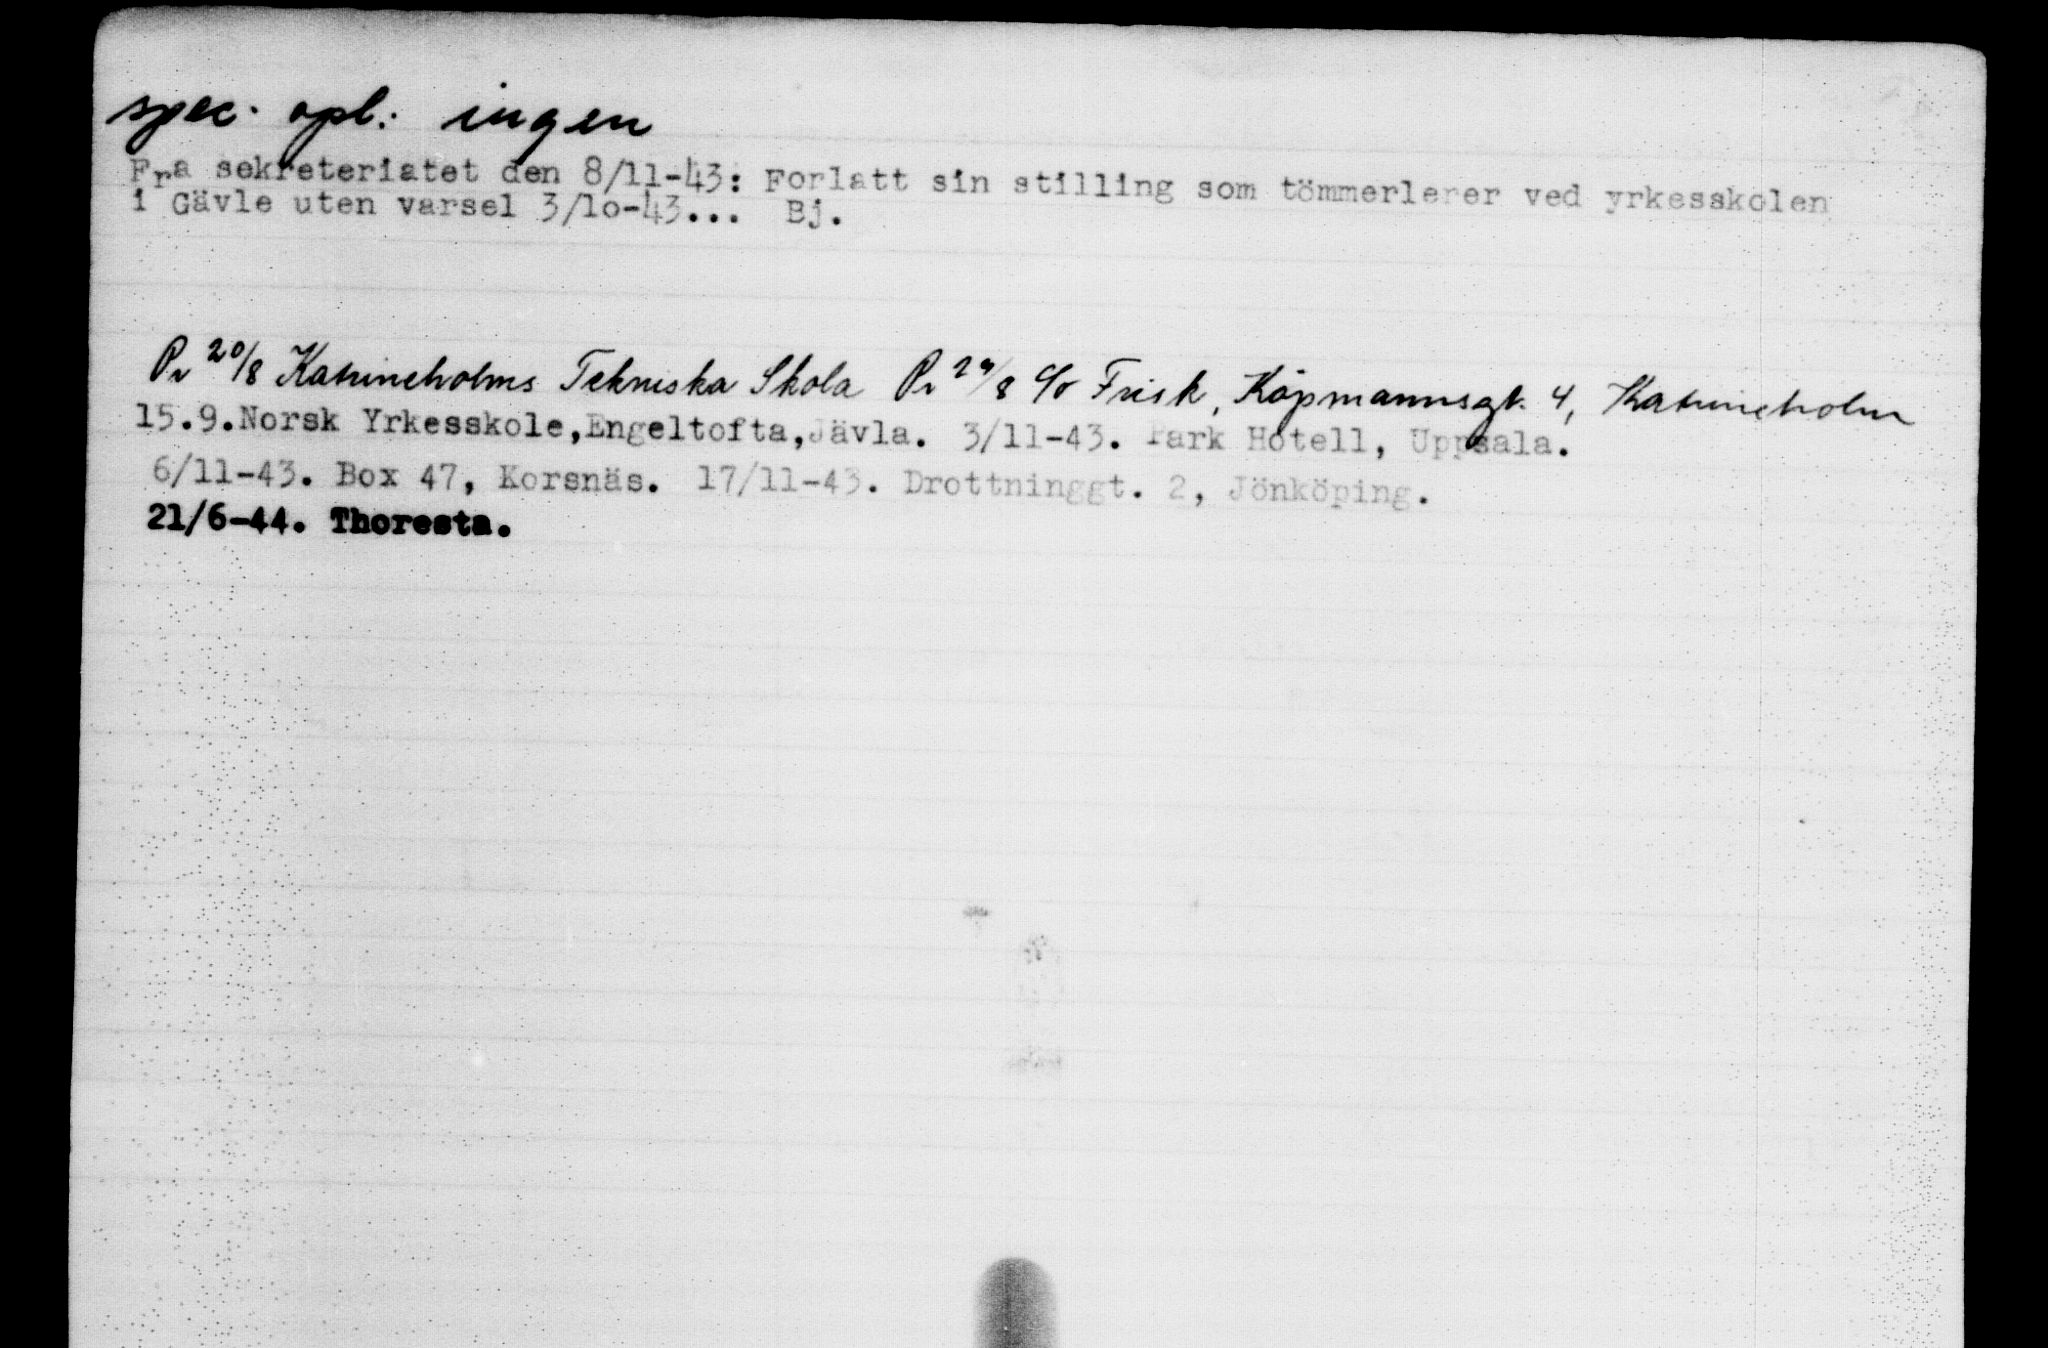 spec. opl.: ingen
Fra sekreteriatet den 8/11-43: Forlatt sin stilling som tömmerlerer ved yrkesskolen
i Gävle uten varsel 3/10-43... Bj.
Pr 20/8 Katrineholms Tekniska Skola Pr 24/8 c/o Frisk, Köpmannsgt. 4, Katrineholm
15.9.Norsk Yrkesskole,Engeltofta,Jävla. 3/11-43. Park Hotell, Uppsala.
6/11-43. Box 47, Korsnäs. 17/11-43. Drottninggt. 2, Jönköping.
21/6-44. Thoresta.